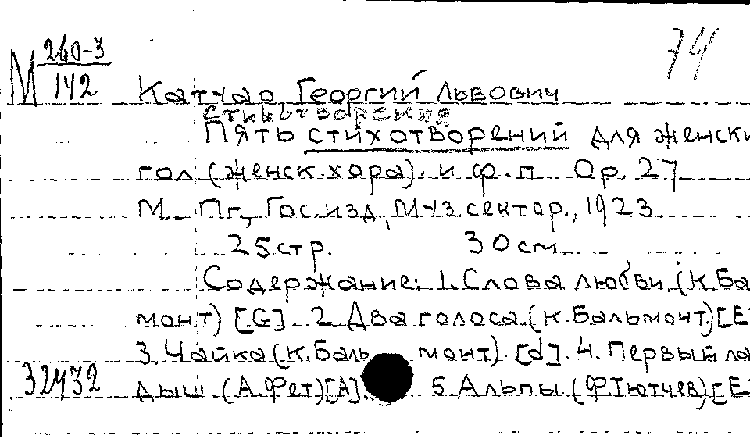 М 260-3
142
74
Катуар Георгий Львович
стихотворения
Пять стихотворений для женски
гол (женск. хора). и ф.п Ор. 27
М. Пг., Гос. изд, Муз. сектор., 1923
25 стр. 30 см
Содержание: 1. Слова любви (К. Ба
монт) [G]. 2. Два голоса. (К. Бальмонт) [E
3. Чайка (К. Баль монт). [d]. 4. Первый ла
32432 дыш. (А. Фет) [A]. 5. Альпы (Ф Тютчев) [E